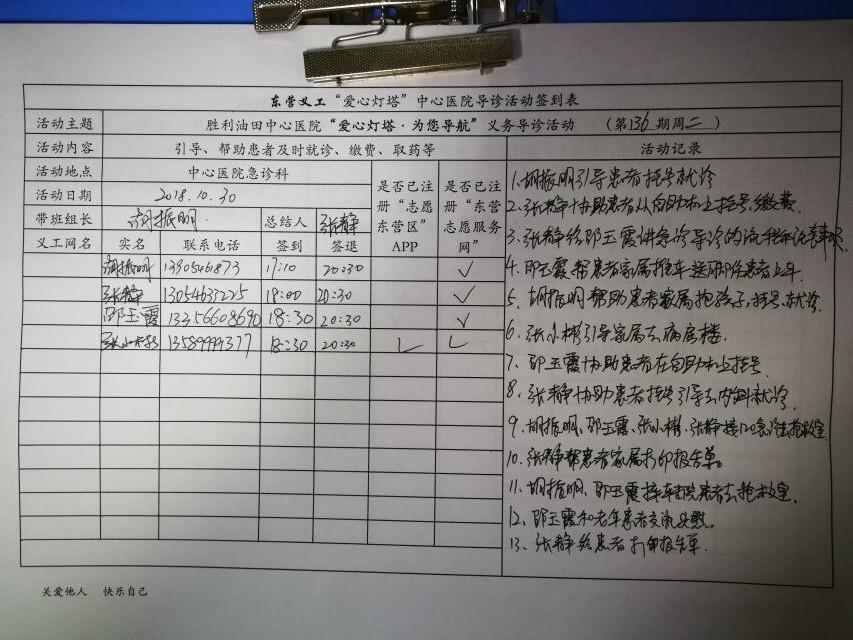 东营义工“爱心灯塔”中心医院导诊活动签到表
活动主题 胜利油田中心医院“爱心灯塔·为您导航”义务导诊活动 （第136期周二）
活动内容 引导、帮助患者及时就诊、缴费、取药等 活动记录
活动地点 中心医院急诊科
活动日期 2018.10.30
带班组长 胡振明 总结人 张静
是否已注册“志愿东营区”APP
是否已注册“东营志愿服务网”
义工网名 实名 联系电话 签到 签退
胡振明 17:10 20:30 ✓
张静 13054637225 18:00 20:30 ✓
邵玉霞 13256608690 18:30 20:30 ✓
张小彬 13589999377 18:30 20:30 ✓ ✓
1.胡振明引导患者挂号就诊
2.张静协助患者从自助机上挂号、缴费.
3.张静给邵玉霞讲急诊导诊的流程和注意事项
4.邵玉霞帮患者家属推车送患者上车.
5.胡振明帮助患者家属抱孩子,挂号,就诊.
6.张小彬引导家属去病房楼.
7.邵玉霞协助患者在自助机上挂号
8.张静协助患者挂号引导去内科就诊.
9.胡振明、邵玉霞、张小彬、张静接120急诊去抢救室
10.张静帮患者家属打印报告单.
11.胡振明、邵玉霞接车患者去抢救室.
12.邵玉霞和老年患者交流安慰.
13.张静给患者打印报告单.
关爱他人 快乐自己